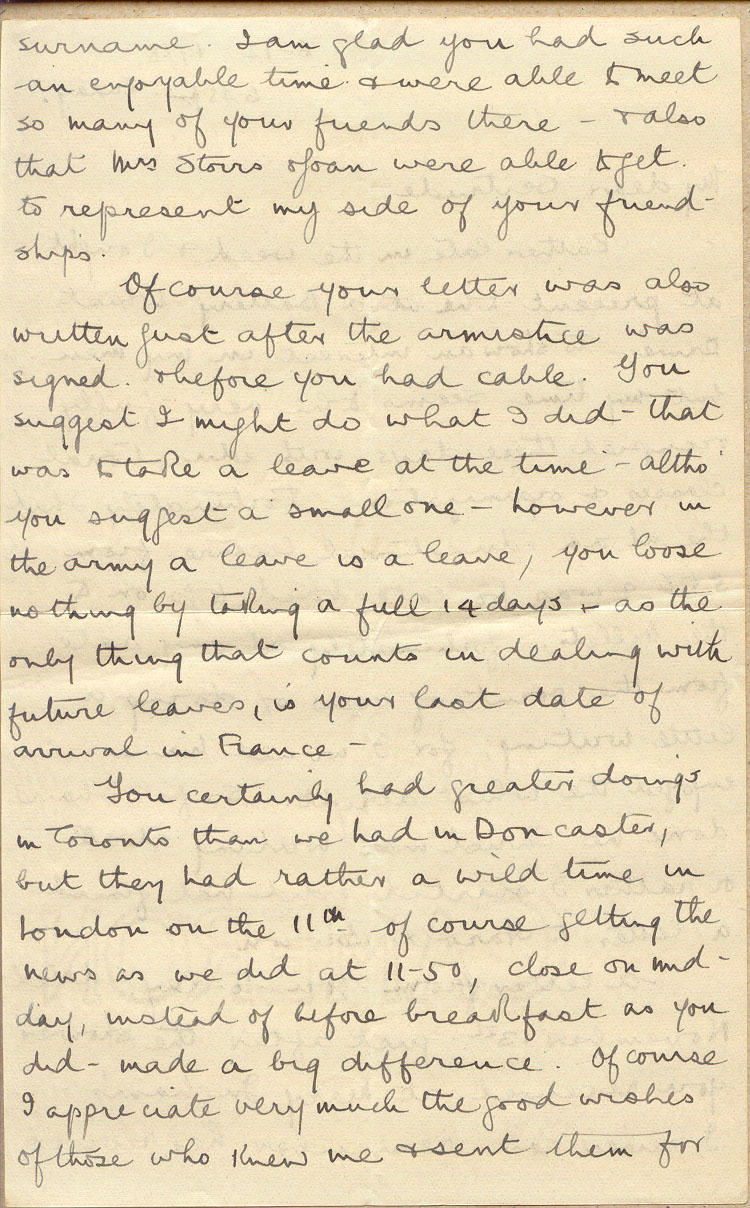 surname. I am glad you had such
an enjoyable time & were able to meet
so many of your friends there – & also
that Mrs Storrs & Joan were able to get.
to represent my side of your friend-
ships.
Of course your letter was also
written just after the armistice was
signed. & before you had cable. You
suggest I might do what I did – that
was to take a leave at the time – altho'
you suggest a small one – however in
the army a leave is a leave, you loose
nothing by taking a full 14 days – as the
only thing that counts in dealing with
future leaves, is your last date of
arrival in France –
You certainly had greater doings
in Toronto than we had in Doncaster,
but they had rather a wild time in
London on the 11th. of course getting the
news as we did at 11-50, close on mid-
day, instead of before breakfast as you
did – made a big difference. Of course
I appreciate very much the good wishes
of those who knew me & sent them for